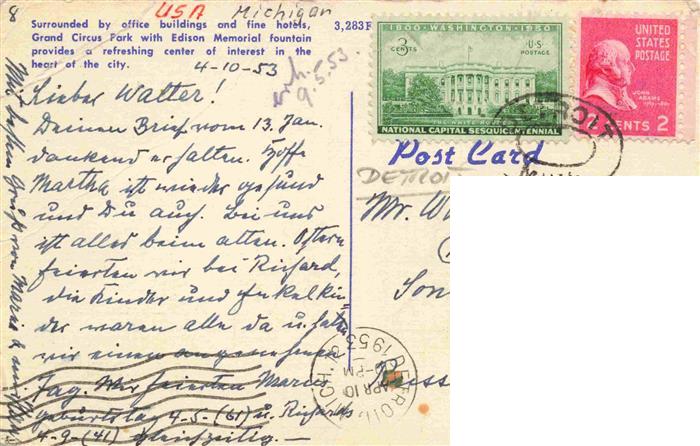 8
USA Michigan
Surrounded by office buildings and fine hotels,
Grand Circus Park with Edison Memorial fountain
provides a refreshing center of interest in the
heart of the city.
3,283F
4-10-53
9.5.53.
Lieber Walter!
Deinen Brief vom 13. Jan.
dankend erhalten. Hoffe
Martha ist wieder gesund
und Du auch. Bei uns
ist alles beim alten. Ostern
feierten wir bei Richard,
die Kinder und Enkelkin-
der waren alle da u. hatten
wir einen angenehmen
Tag. Wir feierten Maries
Geburtstag 4-5-(61) u. Richards
4-9-(41) gleichzeitig. —
Mit besten Gruß von Marie &
1800-WASHINGTON-1950
3 CENTS
U.S. POSTAGE
THE WHITE HOUSE
NATIONAL CAPITAL SESQUICENTENNIAL
UNITED
STATES
POSTAGE
JOHN
ADAMS
CENTS 2
Post Card
DETROIT
Mr. W
Son
DETROIT
APR 10
PM
1953
MICH.